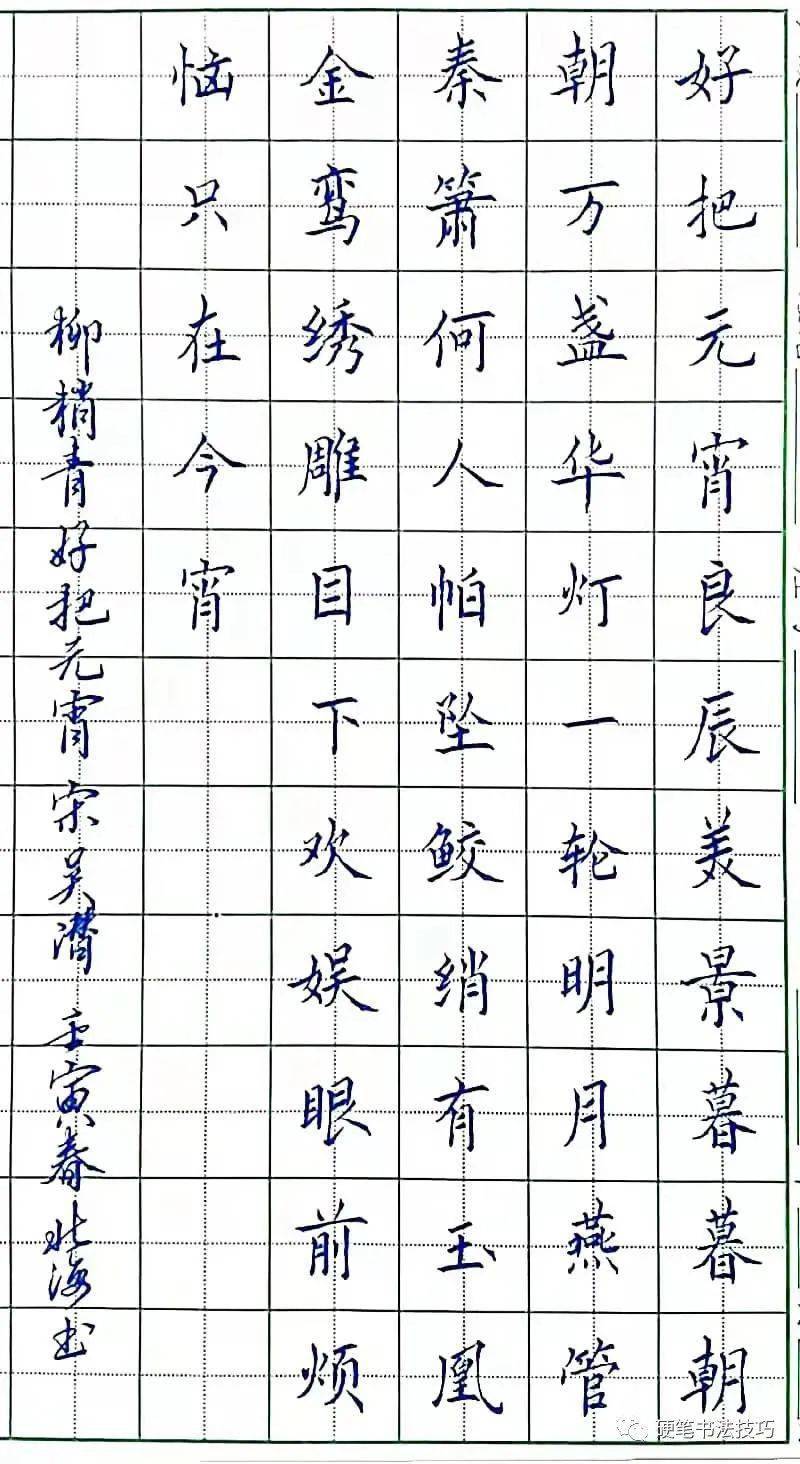 好把元宵良辰美景暮暮朝
朝万盏华灯一轮明月燕管
秦箫何人帕坠鲛绡有玉凰
金鸾绣雕目下欢娱眼前烦
恼只在今宵
柳梢青好把元宵宋吴潜 壬寅春北海书
硬笔书法技巧